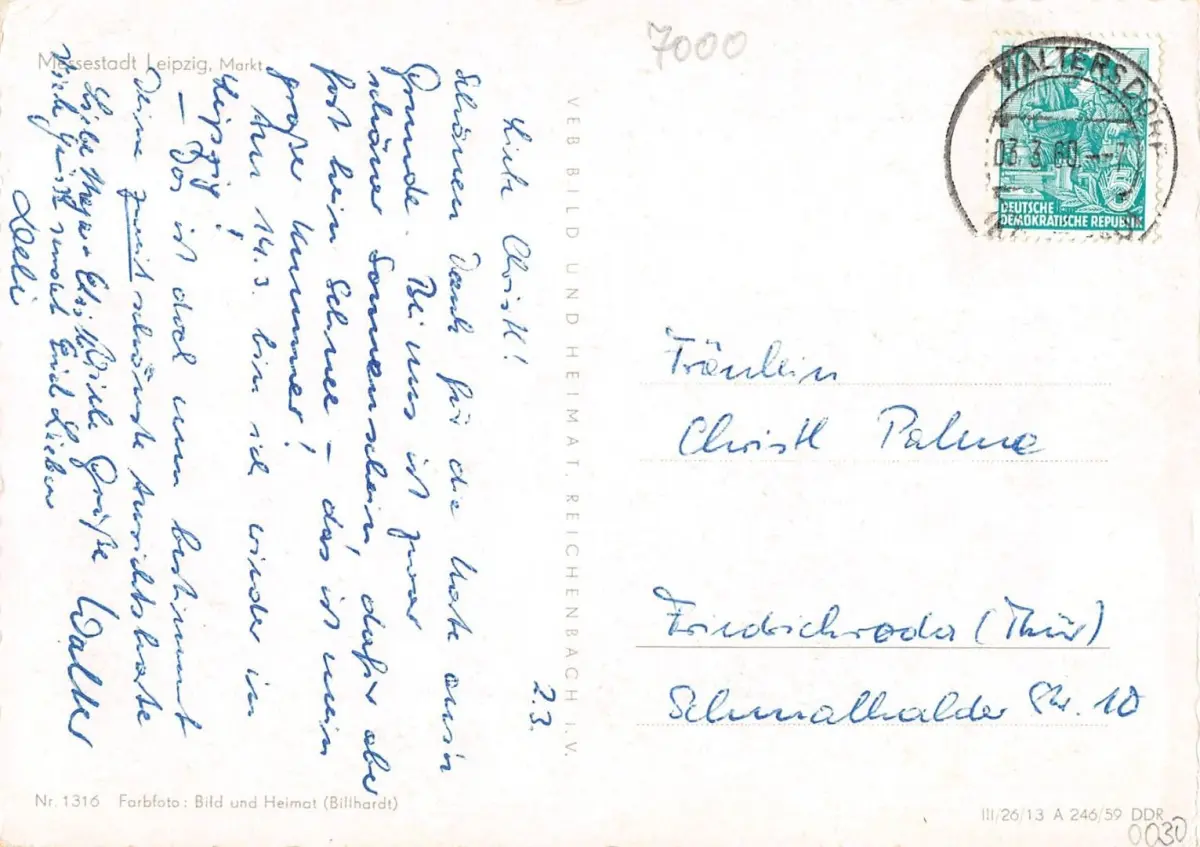 Messestadt Leipzig, Markt
7000
2.3.
Liebe Christl!
Schönen Dank für die Karte
Grunde. Bei uns ist zwar
schöner Sonnenschein, dafür aber
fast kein Schnee – das ist mein
große Kummer!
Am 14.3. bin ich wieder in
Leipzig!
– Das ist doch nun bestimmt
Deine zweit schönste Ansichtskarte
Viele Grüße Walter
Liebe
Viele Grüße Euch Lieben
VEB BILD UND HEIMAT, REICHENBACH I. V.
WALTERSDORF
03.3.60.--7
5
DEUTSCHE
DEMOKRATISCHE REPUBLIK
Fräulein
Christl Palme
Friedrichroda (Thür)
Schmalkalder Str. 10
Nr. 1316 Farbfoto: Bild und Heimat (Billhardt)
III/26/13 A 246/59 DDR
0030